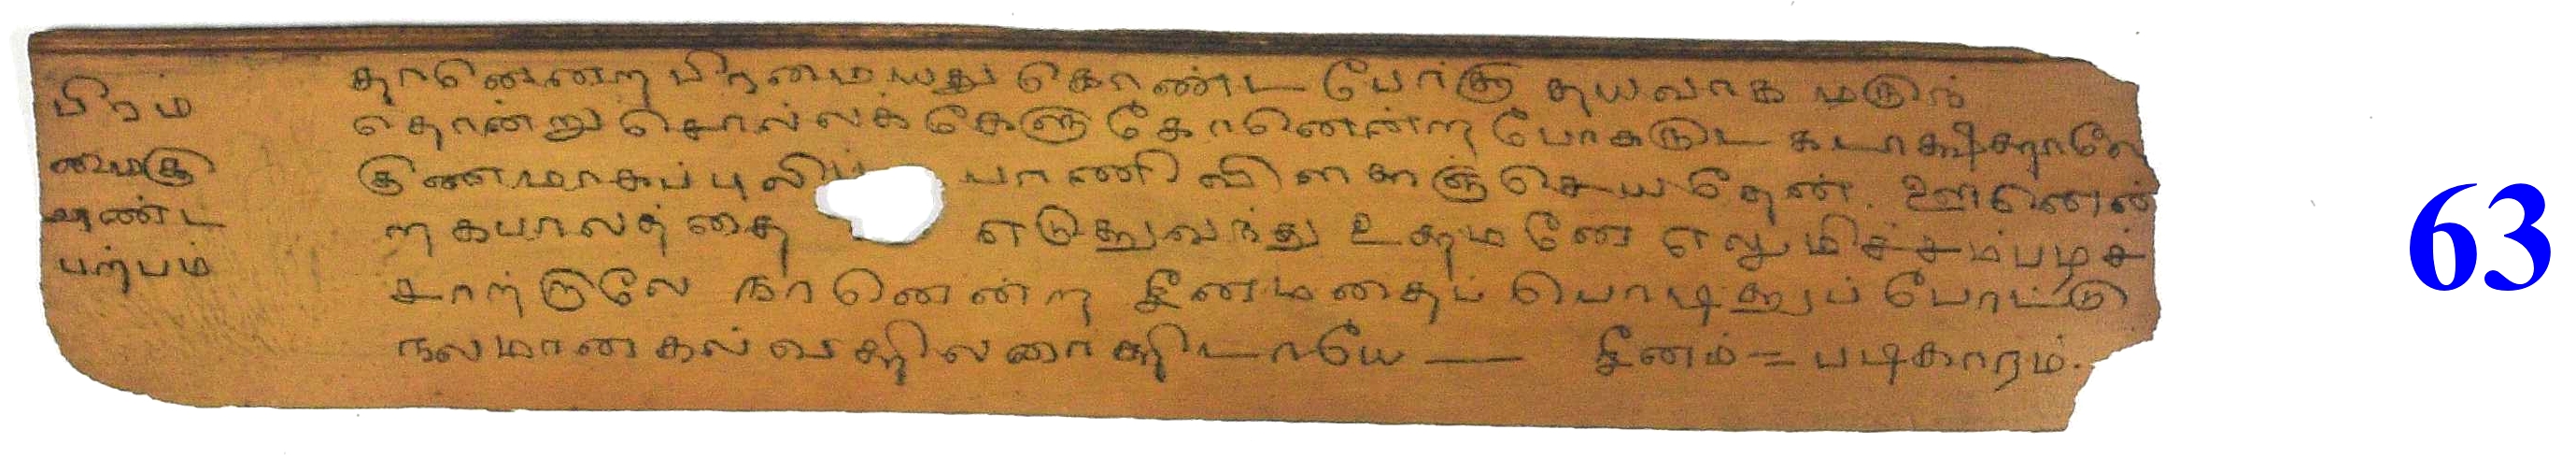 பிரம
மைகு
பண்ட
பற்பம்
தானென்ற பிரமையது கொண்ட பேர்கு தயவாக மருந்
தொன்று சொல்லக் கேளு கோனென்ற போகருட கடாக்ஷத்தாலே
குணமாகப் புலிப் பாணி விளகஞ் செயதேன். ஊனென்
ற கபாலத்தை எடுதுவந்து உதமனே எலுமிச்சம்பழச்
சாற்குலே நானென்ற சீனமதைப் பொடிதுப் போட்டு
நலமான கல்வதிலரைதிடாயே — சீனம் = படிகாரம்.
63